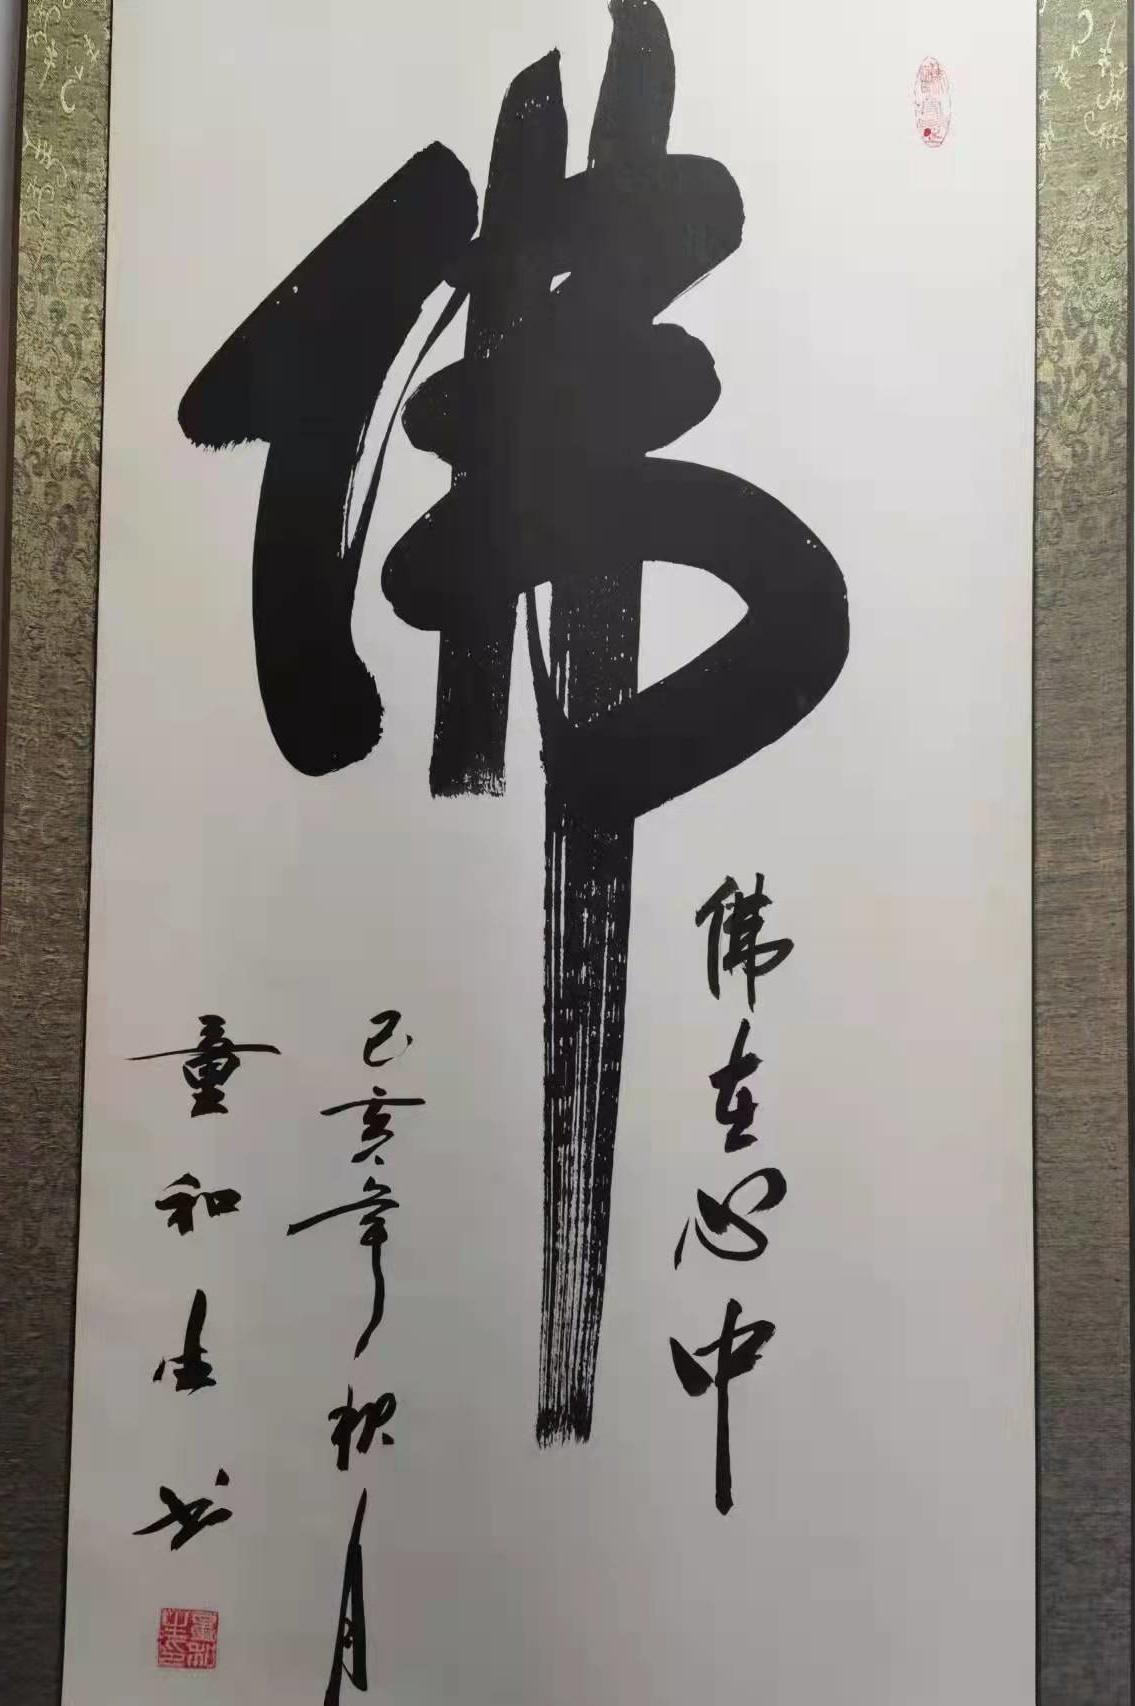 佛
佛在心中
己亥年秋月
童和生书